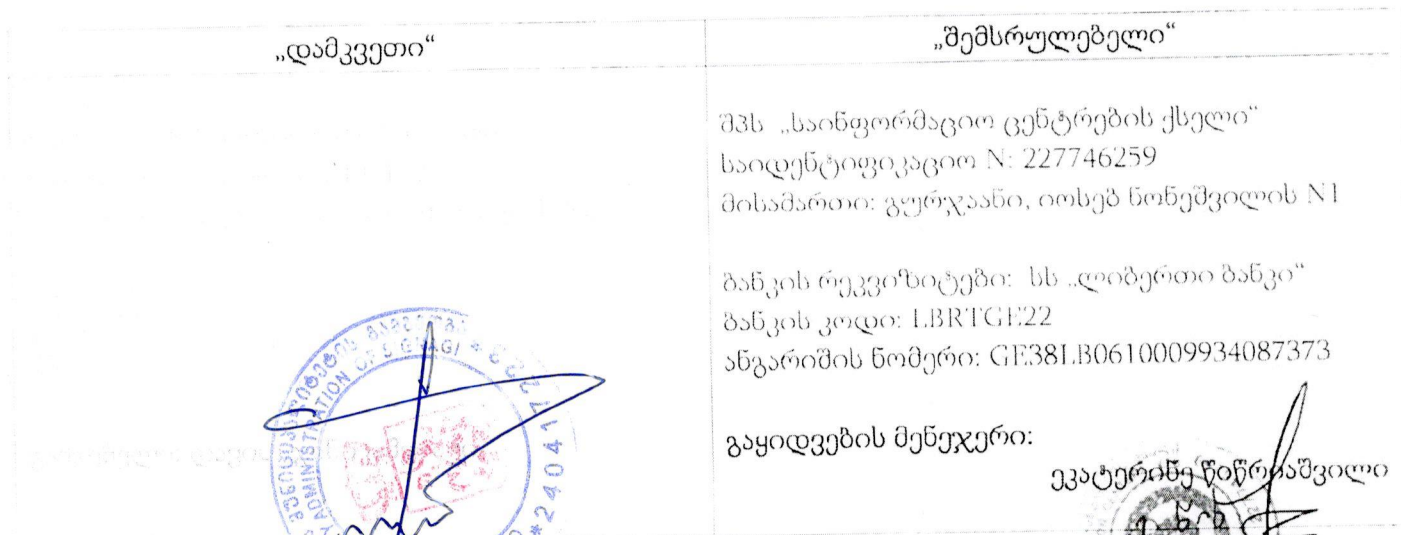 „დამკვეთი“
„შემსრულებელი“
შპს „საინფორმაციო ცენტრების ქსელი“
საიდენტიფიკაციო N: 227746259
მისამართი: გურჯაანი, იოსებ ნონეშვილის N1
ბანკის რეკვიზიტები: სს „ლიბერთი ბანკი“
ბანკის კოდი: LBRTGE22
ანგარიშის ნომერი: GE38LB0610009934087373
გაყიდვების მენეჯერი:
ეკატერინე წიწრიაშვილი